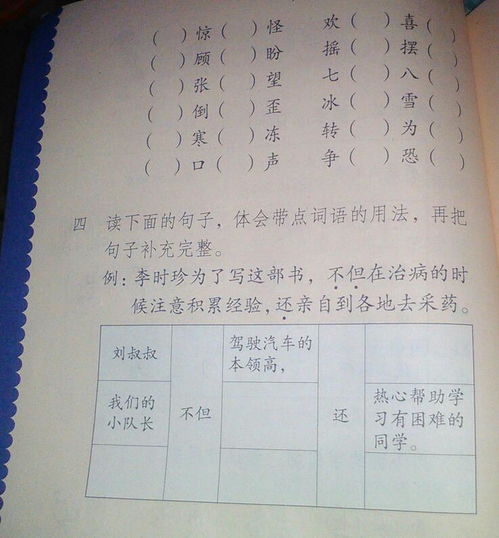 （ ）惊（ ）怪 欢（ ）喜（ ）
（ ）顾（ ）盼 摇（ ）摆（ ）
（ ）张（ ）望 七（ ）八（ ）
（ ）倒（ ）歪 冰（ ）雪（ ）
（ ）寒（ ）冻 转（ ）为（ ）
（ ）口（ ）声 争（ ）恐（ ）
四 读下面的句子，体会带点词语的用法，再把
句子补充完整。
例：李时珍为了写这部书，不但在治病的时
候注意积累经验，还亲自到各地去采药。
刘叔叔
我们的
小队长
不但
驾驶汽车的
本领高，
还
热心帮助学
习有困难的
同学。